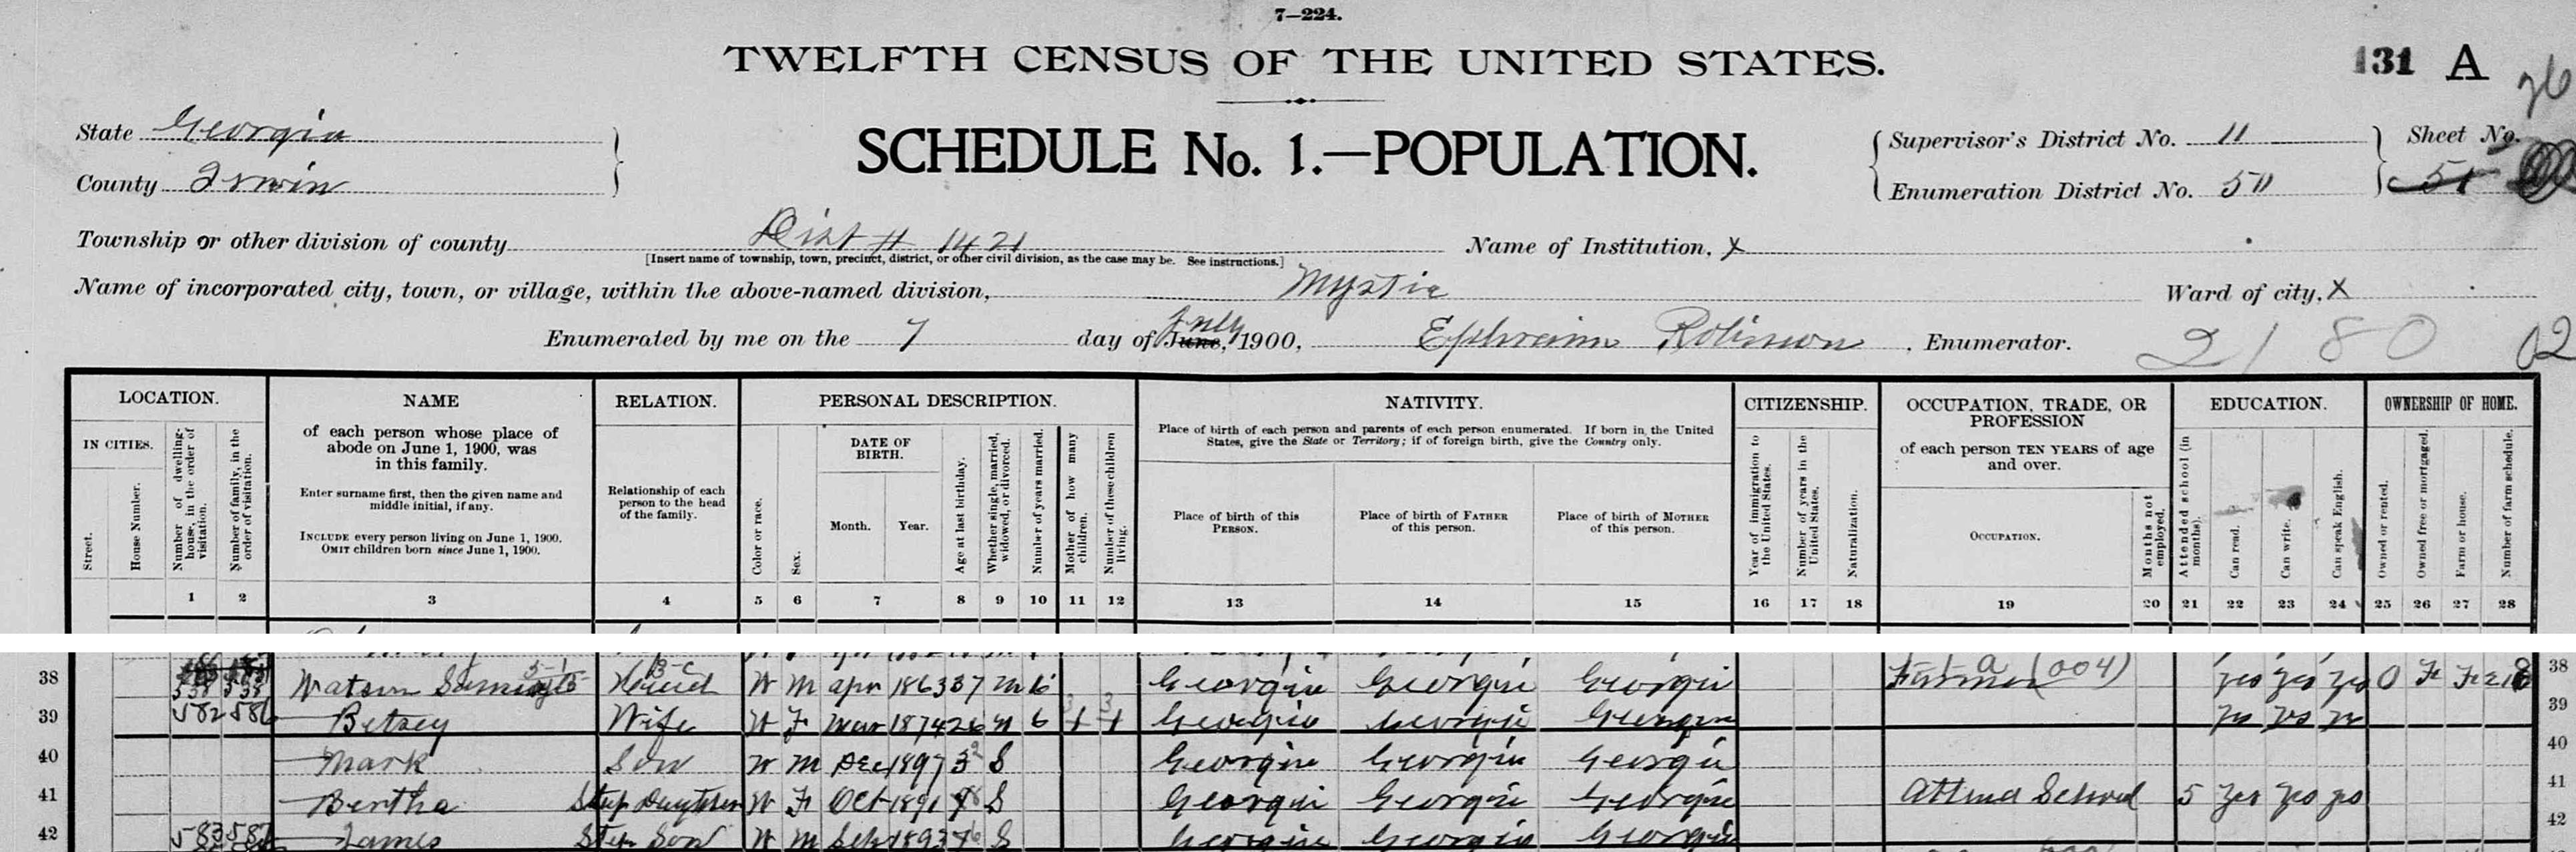 7—224.
TWELFTH CENSUS OF THE UNITED STATES.
131 A
76
State Georgia
County Irwin
SCHEDULE No. 1.—POPULATION.
Supervisor's District No. 11
Enumeration District No. 50
Sheet No.
51
Township or other division of county Dist # 1421
[Insert name of township, town, precinct, district, or other civil division, as the case may be. See instructions.]
Name of Institution, X
Name of incorporated city, town, or village, within the above-named division, Mystic
Ward of city, X
Enumerated by me on the 7 day of June, July 1900, Ephraim Robinson, Enumerator.
2180 02
LOCATION.
IN CITIES.
Street.
House Number.
Number of dwelling-house, in the order of visitation.
Number of family, in the order of visitation.
NAME
of each person whose place of abode on June 1, 1900, was in this family.
Enter surname first, then the given name and middle initial, if any.
INCLUDE every person living on June 1, 1900.
OMIT children born since June 1, 1900.
RELATION.
Relationship of each person to the head of the family.
PERSONAL DESCRIPTION.
Color or race.
Sex.
DATE OF BIRTH.
Month. Year.
Age at last birthday.
Whether single, married, widowed, or divorced.
Number of years married.
Mother of how many children.
Number of these children living.
NATIVITY.
Place of birth of each person and parents of each person enumerated. If born in the United States, give the State or Territory; if of foreign birth, give the Country only.
Place of birth of this PERSON.
Place of birth of FATHER of this person.
Place of birth of MOTHER of this person.
CITIZENSHIP.
Year of immigration to the United States.
Number of years in the United States.
Naturalization.
OCCUPATION, TRADE, OR PROFESSION
of each person TEN YEARS of age and over.
OCCUPATION.
Months not employed.
EDUCATION.
Attended school (in months).
Can read.
Can write.
Can speak English.
OWNERSHIP OF HOME.
Owned or rented.
Owned free or mortgaged.
Farm or house.
Number of farm schedule.
1 2 3 4 5 6 7 8 9 10 11 12 13 14 15 16 17 18 19 20 21 22 23 24 25 26 27 28
38 Watson Head W M Apr 1863 37 M 6 Georgia Georgia Georgia Farmer (004) yes yes yes O F F 38
39 582 586 Betsey Wife W F Mar 1874 26 M 6 Georgia Georgia Georgia yes yes yes 39
40 Mark Son W M Dec 1897 S Georgia Georgia Georgia 40
41 Bertha Step Daughter W F Oct 1891 8 S Georgia Georgia Georgia Attend School 5 yes yes yes 41
42 583 James Step Son W M 1893 6 S Georgia Georgia Georgia 42